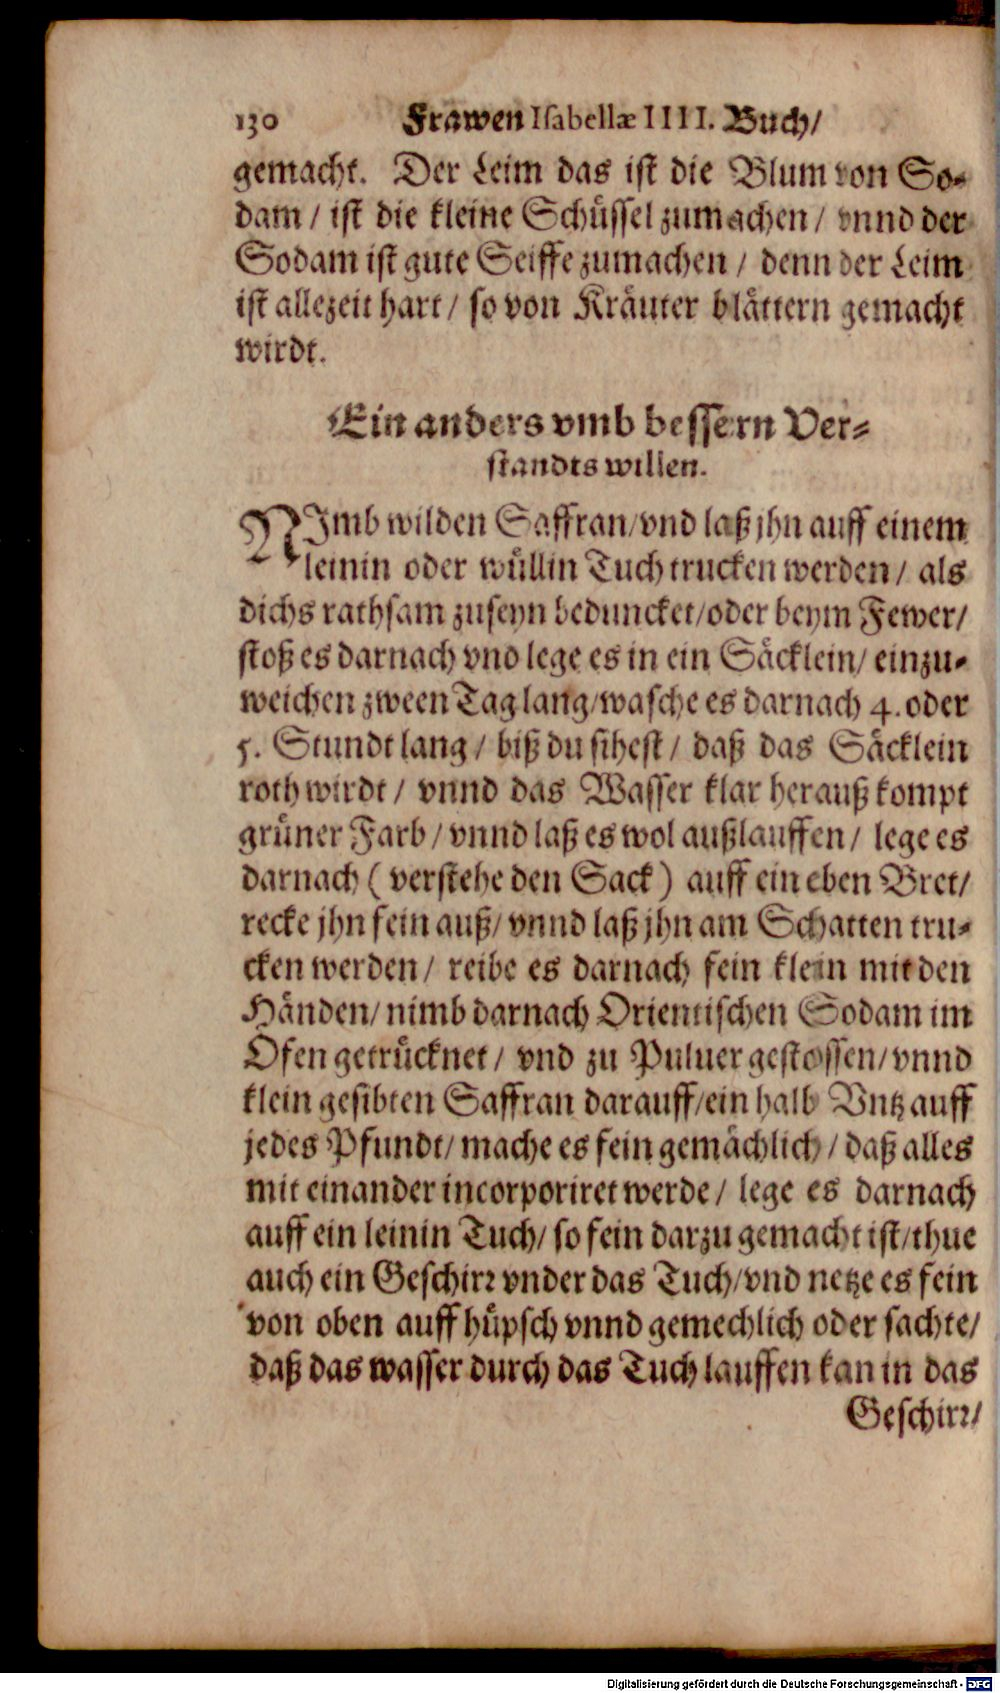 130 Frawen Isabellæ IIII. Buch/
gemacht. Der Leim das ist die Blum von So-
dam / ist die kleine Schüssel zumachen / vnnd der
Sodam ist gute Seiffe zumachen / denn der Leim
ist allezeit hart / so von Kräuter blättern gemacht
wirdt.
Ein anders vmb bessern Ver-
standts willen.
NImb wilden Saffran/vnd laß jhn auff einem
leinin oder wüllin Tuch trucken werden / als
dichs rathsam zuseyn beduncket/oder beym Fewer/
stoß es darnach vnd lege es in ein Säcklein/ einzu-
weichen zween Tag lang/wasche es darnach 4. oder
5. Stundt lang / biß du sihest / daß das Säcklein
roth wirdt / vnnd das Wasser klar herauß kompt
grüner Farb/ vnnd laß es wol außlauffen / lege es
darnach ( verstehe den Sack ) auff ein eben Bret/
recke jhn fein auß/ vnnd laß jhn am Schatten tru-
cken werden / reibe es darnach fein klein mit den
Händen/ nimb darnach Orientischen Sodam im
Ofen getrücknet / vnd zu Puluer gestossen/ vnnd
klein gesibten Saffran darauff/ein halb Vntz auff
jedes Pfundt/ mache es fein gemächlich / daß alles
mit einander incorporiret werde / lege es darnach
auff ein leinin Tuch/ so fein darzu gemacht ist/thue
auch ein Geschirr vnder das Tuch/vnd netze es fein
von oben auff hüpsch vnnd gemechlich oder sachte/
daß das wasser durch das Tuch lauffen kan in das
Geschirr/
Digitalisierung gefördert durch die Deutsche Forschungsgemeinschaft - DFG